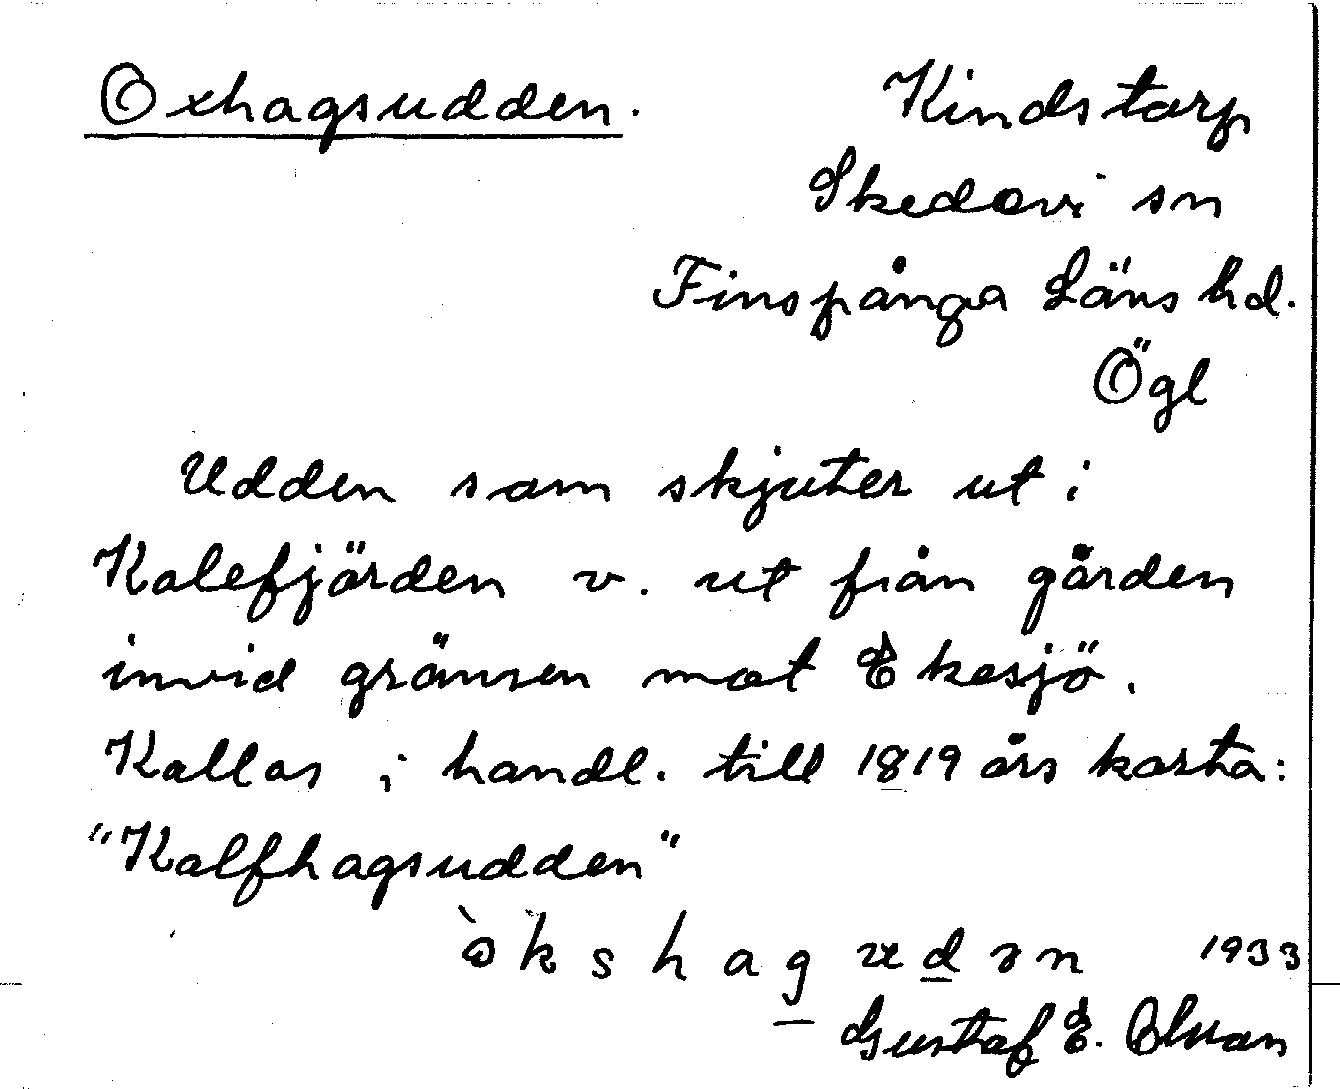 Oxhagsudden.
Kindstorp
Skedevi sn
Finspånga Läns hd.
Ögl
Udden som skjuter ut i
Kolefjärden v. ut från gården
invid gränsen mot Ekesjö.
Kallas i handl. till 1819 års karta:
"Kalfhagsudden"
1933
Gustaf E.